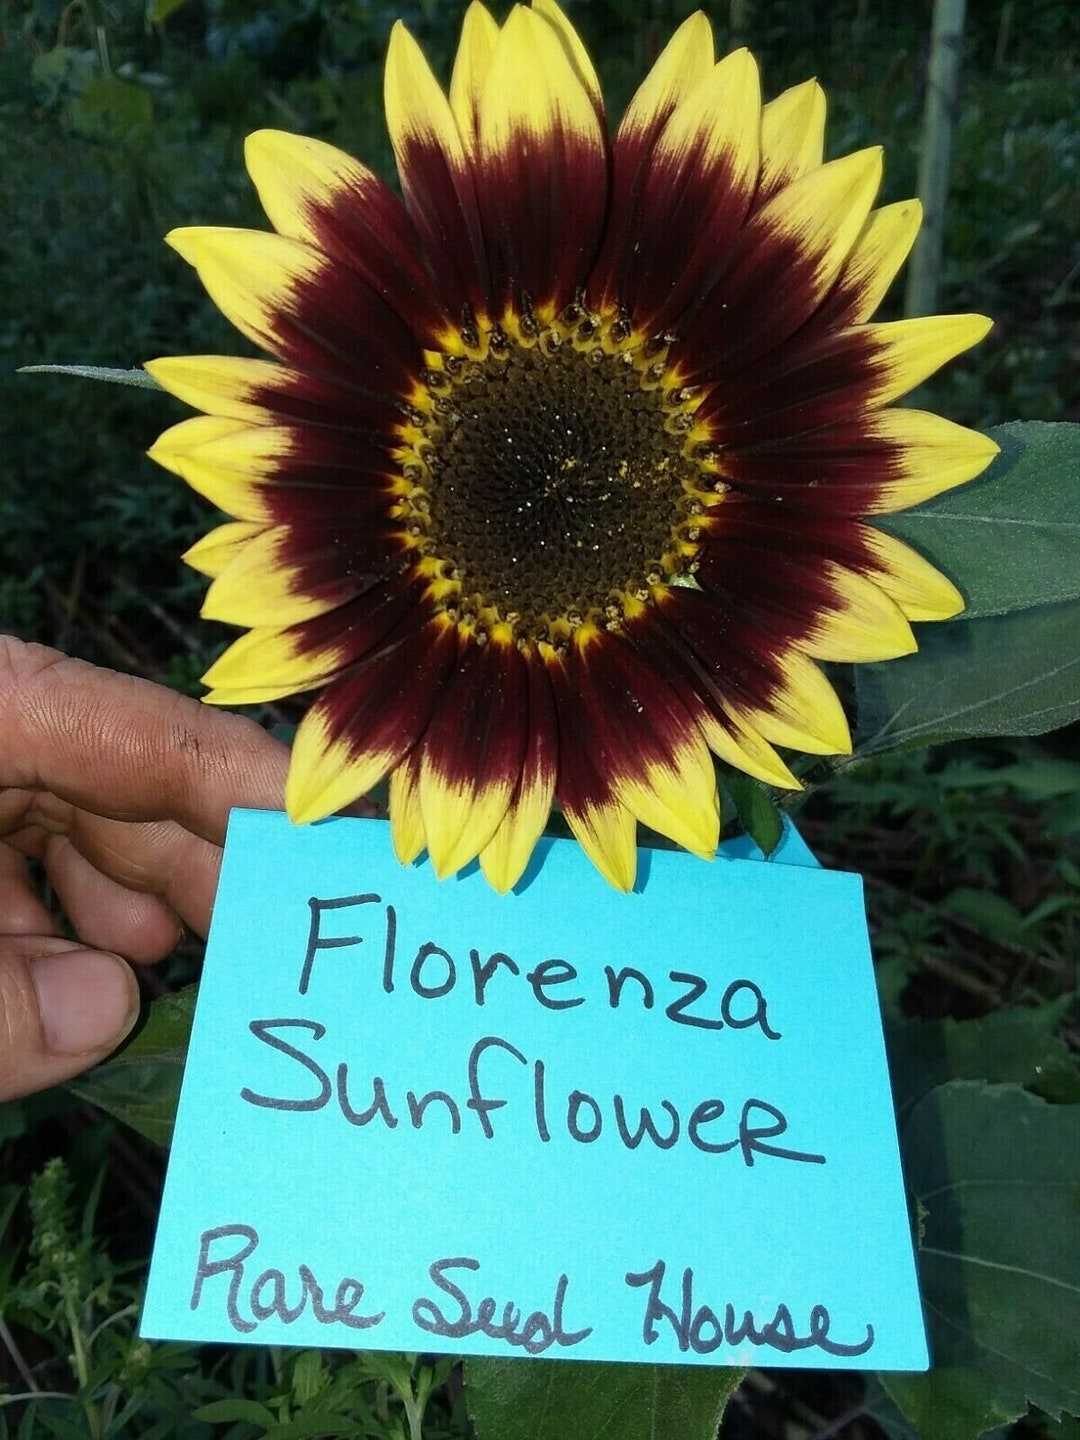 Florenza
Sunflower
Rare Seed House